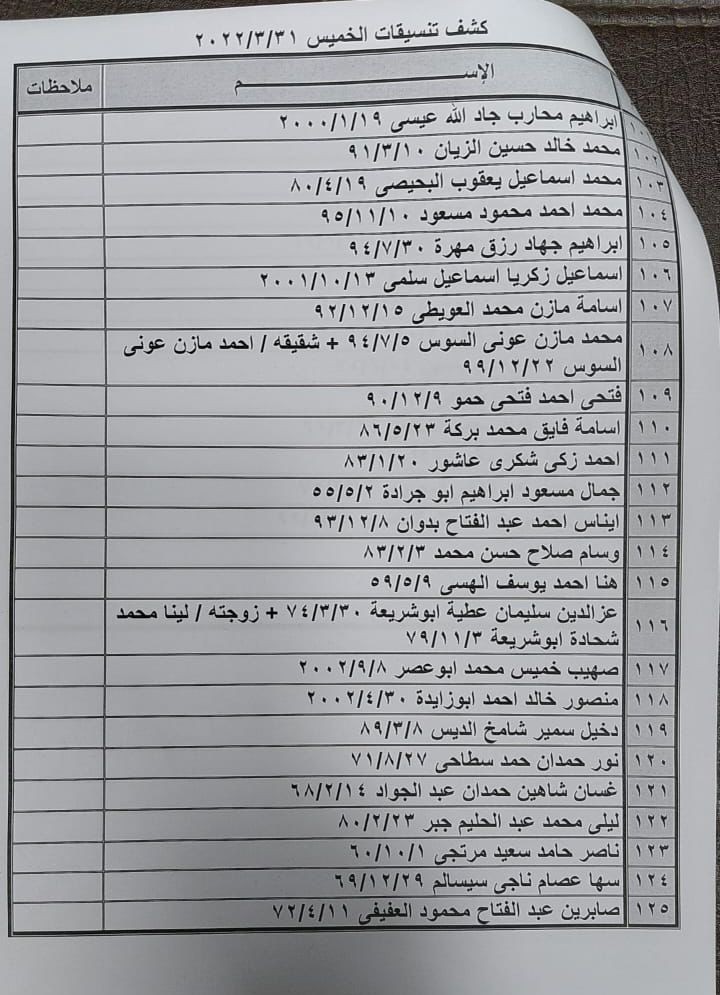 كشف تنسيقات الخميس ٢٠٢٢/٣/٣١
الإســـــــــــــــم ملاحظات
ابراهيم محارب جاد الله عيسى ٢٠٠٠/١/١٩
١٠٢ محمد خالد حسين الزيان ٩١/٣/١٠
١٠٣ محمد اسماعيل يعقوب البحيصى ٨٠/٤/١٩
١٠٤ محمد احمد محمود مسعود ٩٥/١١/١٠
١٠٥ ابراهيم جهاد رزق مهرة ٩٤/٧/٣٠
١٠٦ اسماعيل زكريا اسماعيل سلمى ٢٠٠١/١٠/١٣
١٠٧ اسامة مازن محمد العويطى ٩٢/١٢/١٥
١٠٨ محمد مازن عونى السوس ٩٤/٧/٥ + شقيقه / احمد مازن عونى
السوس ٩٩/١٢/٢٢
١٠٩ فتحى احمد فتحى حمو ٩٠/١٢/٩
١١٠ اسامة فايق محمد بركة ٨٦/٥/٢٣
١١١ احمد زكى شكرى عاشور ٨٣/١/٢٠
١١٢ جمال مسعود ابراهيم ابو جرادة ٥٥/٥/٢
١١٣ ايناس احمد عبد الفتاح بدوان ٩٣/١٢/٨
١١٤ وسام صلاح حسن محمد ٨٣/٢/٣
١١٥ هنا احمد يوسف الهسى ٥٩/٥/٩
١١٦ عزالدين سليمان عطية ابوشريعة ٧٤/٣/٣٠ + زوجته / لينا محمد
شحادة ابوشريعة ٧٩/١١/٣
١١٧ صهيب خميس محمد ابوعصر ٢٠٠٢/٩/٨
١١٨ منصور خالد احمد ابوزايدة ٢٠٠٢/٤/٣٠
١١٩ دخيل سمير شامخ الديس ٨٩/٣/٨
١٢٠ نور حمدان حمد سطاحى ٧١/٨/٢٧
١٢١ غسان شاهين حمدان عبد الجواد ٦٨/٢/١٤
١٢٢ ليلى محمد عبد الحليم جبر ٨٠/٢/٢٣
١٢٣ ناصر حامد سعيد مرتجى ٦٠/١٠/١
١٢٤ سها عصام ناجى سيسالم ٦٩/١٢/٢٩
١٢٥ صابرين عبد الفتاح محمود العفيفى ٧٢/٤/١١